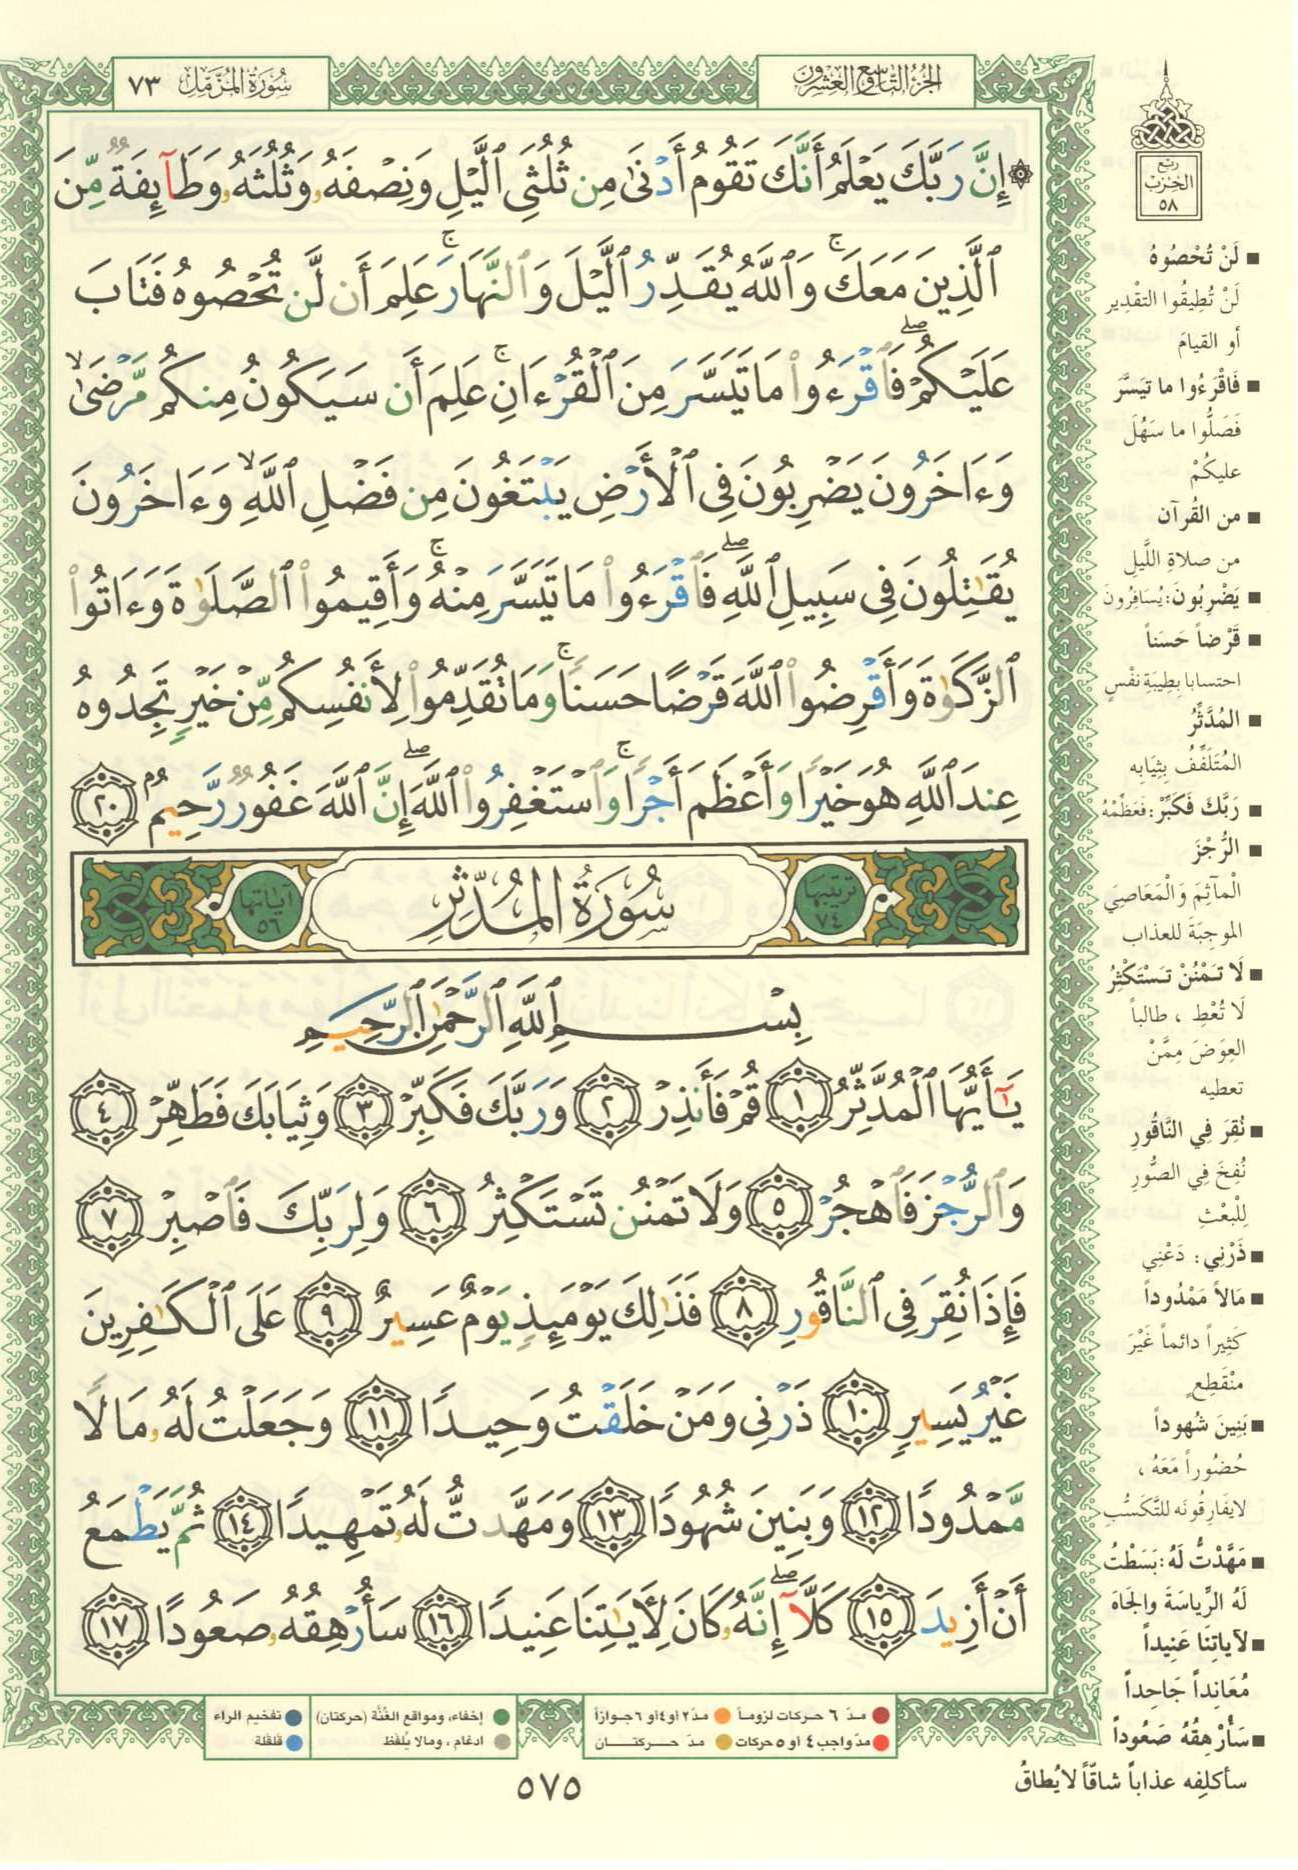 سُورَةُ المُزَّمِّل ٧٣
الجُزْءُ التَّاسِعُ وَالعِشْرُون
۞ إِنَّ رَبَّكَ يَعْلَمُ أَنَّكَ تَقُومُ أَدْنَىٰ مِن ثُلُثَىِ ٱلَّيْلِ وَنِصْفَهُۥ وَثُلُثَهُۥ وَطَآئِفَةٌ مِّنَ
ٱلَّذِينَ مَعَكَ ۚ وَٱللَّهُ يُقَدِّرُ ٱلَّيْلَ وَٱلنَّهَارَ ۚ عَلِمَ أَن لَّن تُحْصُوهُ فَتَابَ
عَلَيْكُمْ ۖ فَٱقْرَءُوا۟ مَا تَيَسَّرَ مِنَ ٱلْقُرْءَانِ ۚ عَلِمَ أَن سَيَكُونُ مِنكُم مَّرْضَىٰ ۙ
وَءَاخَرُونَ يَضْرِبُونَ فِى ٱلْأَرْضِ يَبْتَغُونَ مِن فَضْلِ ٱللَّهِ ۙ وَءَاخَرُونَ
يُقَـٰتِلُونَ فِى سَبِيلِ ٱللَّهِ ۖ فَٱقْرَءُوا۟ مَا تَيَسَّرَ مِنْهُ ۚ وَأَقِيمُوا۟ ٱلصَّلَوٰةَ وَءَاتُوا۟
ٱلزَّكَوٰةَ وَأَقْرِضُوا۟ ٱللَّهَ قَرْضًا حَسَنًا ۚ وَمَا تُقَدِّمُوا۟ لِأَنفُسِكُم مِّنْ خَيْرٍ تَجِدُوهُ
عِندَ ٱللَّهِ هُوَ خَيْرًا وَأَعْظَمَ أَجْرًا ۚ وَٱسْتَغْفِرُوا۟ ٱللَّهَ ۖ إِنَّ ٱللَّهَ غَفُورٌ رَّحِيمٌ ٢٠
ترتيبها ٧٤ سُورَةُ المُدَّثِّرِ آياتها ٥٦
بِسْمِ ٱللَّهِ ٱلرَّحْمَـٰنِ ٱلرَّحِيمِ
يَـٰٓأَيُّهَا ٱلْمُدَّثِّرُ ١ قُمْ فَأَنذِرْ ٢ وَرَبَّكَ فَكَبِّرْ ٣ وَثِيَابَكَ فَطَهِّرْ ٤
وَٱلرُّجْزَ فَٱهْجُرْ ٥ وَلَا تَمْنُن تَسْتَكْثِرُ ٦ وَلِرَبِّكَ فَٱصْبِرْ ٧
فَإِذَا نُقِرَ فِى ٱلنَّاقُورِ ٨ فَذَٰلِكَ يَوْمَئِذٍ يَوْمٌ عَسِيرٌ ٩ عَلَى ٱلْكَـٰفِرِينَ
غَيْرُ يَسِيرٍ ١٠ ذَرْنِى وَمَنْ خَلَقْتُ وَحِيدًا ١١ وَجَعَلْتُ لَهُۥ مَالًا
مَّمْدُودًا ١٢ وَبَنِينَ شُهُودًا ١٣ وَمَهَّدتُّ لَهُۥ تَمْهِيدًا ١٤ ثُمَّ يَطْمَعُ
أَنْ أَزِيدَ ١٥ كَلَّآ ۖ إِنَّهُۥ كَانَ لِـَٔايَـٰتِنَا عَنِيدًا ١٦ سَأُرْهِقُهُۥ صَعُودًا ١٧
ربع
الحزب
٥٨
لَنْ تُحْصُوهُ
لَنْ تُطِيقُوا التقْدِير
أو القيامَ
فَاقْرَءُوا ما تيَسَّرَ
فَصَلُّوا ما سَهُلَ
عليكُمْ
من القُرآن
من صلاةِ اللَّيلِ
يَضْرِبُونَ: يُسَافِرُون
قَرْضاً حَسَناً
احتسابا بِطِيبَةِ نفْسٍ
المُدَّثِّرُ
المُتَلَفِّفُ بِثِيَابِه
رَبَّكَ فَكَبِّرْ: فَعَظِّمْهُ
الرُّجْزَ
الْمآثِمَ وَالْمَعَاصِيَ
الموجِبَة للعذاب
لَا تَمْنُنْ تَسْتَكْثِرُ
لَا تُعْطِ ، طالباً
العِوَضَ مِمَّنْ
تعطيه
نُقِرَ فِي النَّاقُورِ
نُفِخَ فِي الصُّورِ
لِلْبَعْثِ
ذَرْنِي: دَعْنِي
مَالاً مَمْدُوداً
كَثِيراً دائماً غَيْرَ
منْقَطِعٍ
بَنِينَ شُهُوداً
حُضُوراً مَعَهُ ،
لا يفَارِقُونَه للتَّكَسُّبِ
مَهَّدْتُ لَهُ: بَسَطْتُ
لَهُ الرِّياسَةَ والجَاهَ
لآياتِنَا عَنِيداً
مُعَانِداً جَاحِداً
سَأُرْهِقُهُ صَعُوداً
سأكلِفه عذاباً شاقّاً لا يُطاقُ
مدّ ٦ حركات لزوماً مدّ ٢ أو ٤ أو ٦ جوازاً إخفاء، ومواقع الغُنَّة (حركتان) تفخيم الراء
مدّ واجب ٤ أو ٥ حركات مدّ حركتان ادغام ، ومالا يُلفَظ قلقلة
٥٧٥